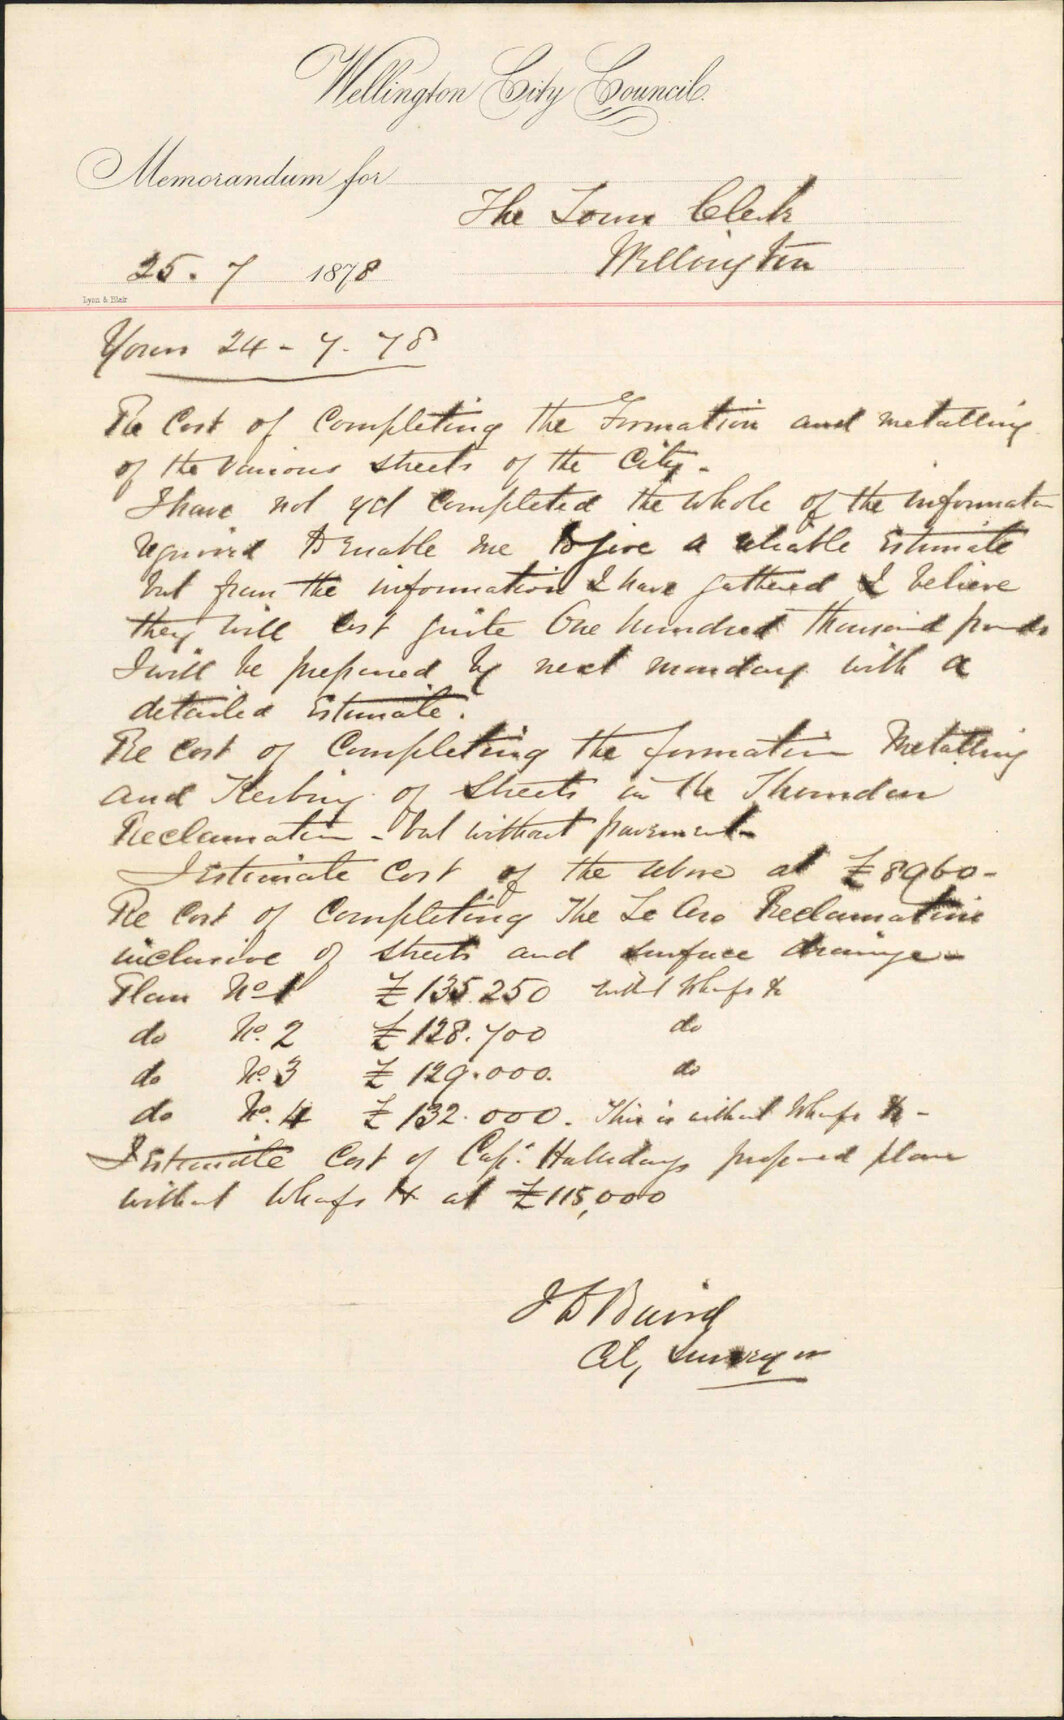 Wellington City Council.
Memorandum for
The Town Clerk
Wellington
25. 7 1878
Lyon & Blair
Yours 24 - 7. 78
Re Cost of Completing the Formation and metalling
of the various streets of the City.
I have not yet completed the whole of the information
required to enable me to give a reliable Estimate
but from the information I have gathered I believe
they will cost quite One hundred thousand pounds
I will be prepared by next monday with a
detailed Estimate.
Re Cost of Completing the formation Metalling
and Kerbing of Streets in the Thorndon
Reclamation - but without pavement -
I estimate Cost of the above at £8960-
Re Cost of Completing The Te Aro Reclamation
inclusive of streets and surface drainage -
Plan No 1 £135.250 without Wharfs &c
do No. 2 £128.700 do
do No. 3 £129.000. do
do No. 4 £132.000. This is without Wharfs &c -
I Estimate Cost of Capt. Hallidays proposed plan
without Wharfs &c at £115,000
J D Baird
City Surveyor